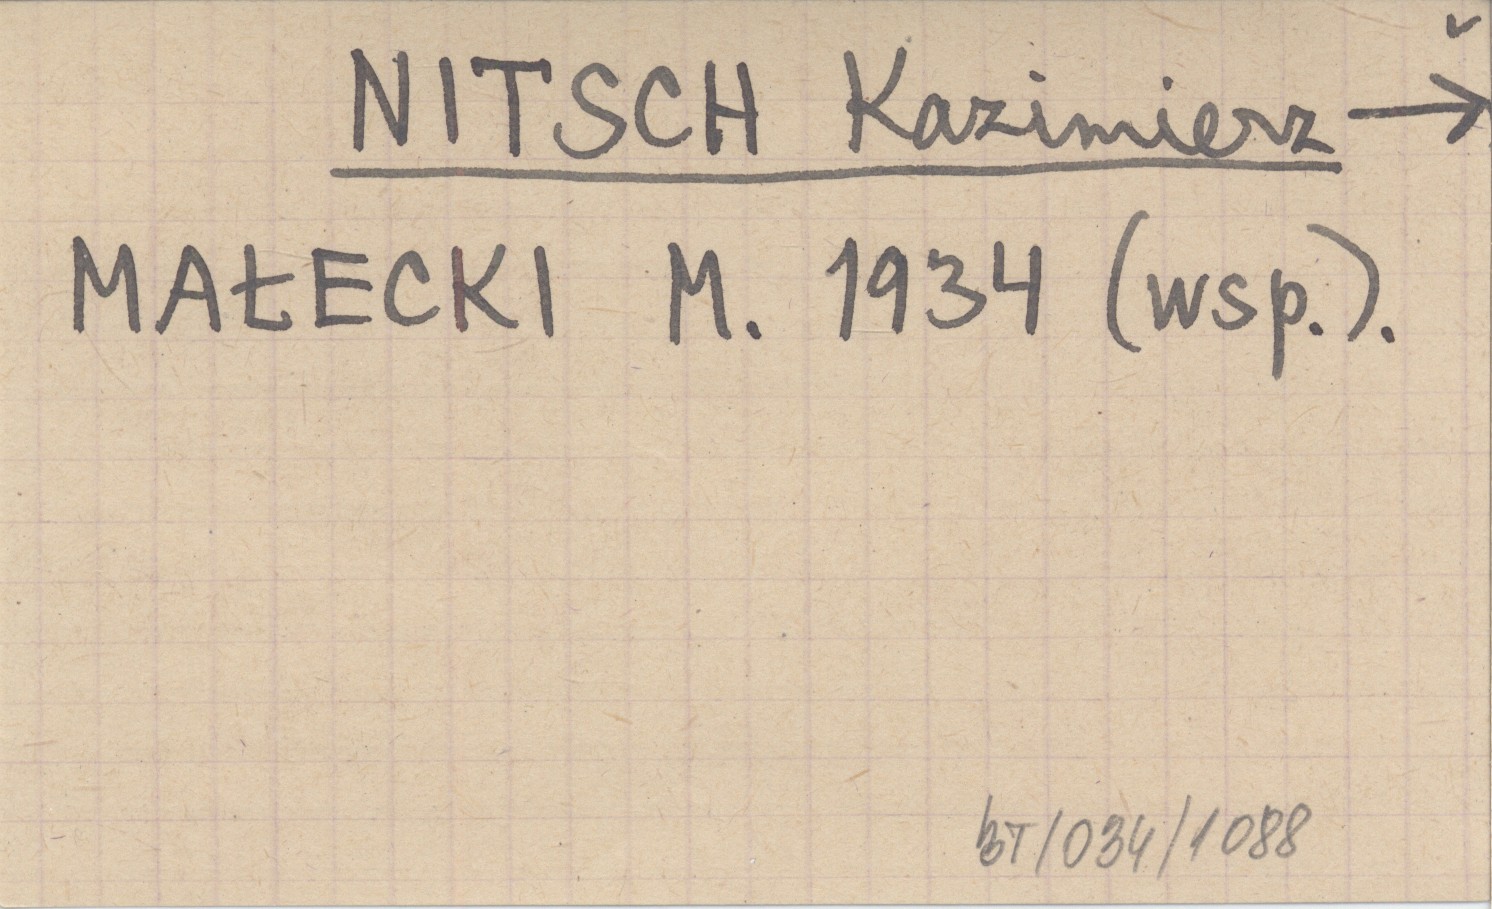 NITSCH Kazimierz →
MAŁECKI M. 1934 (wsp.).
BT/034/1088